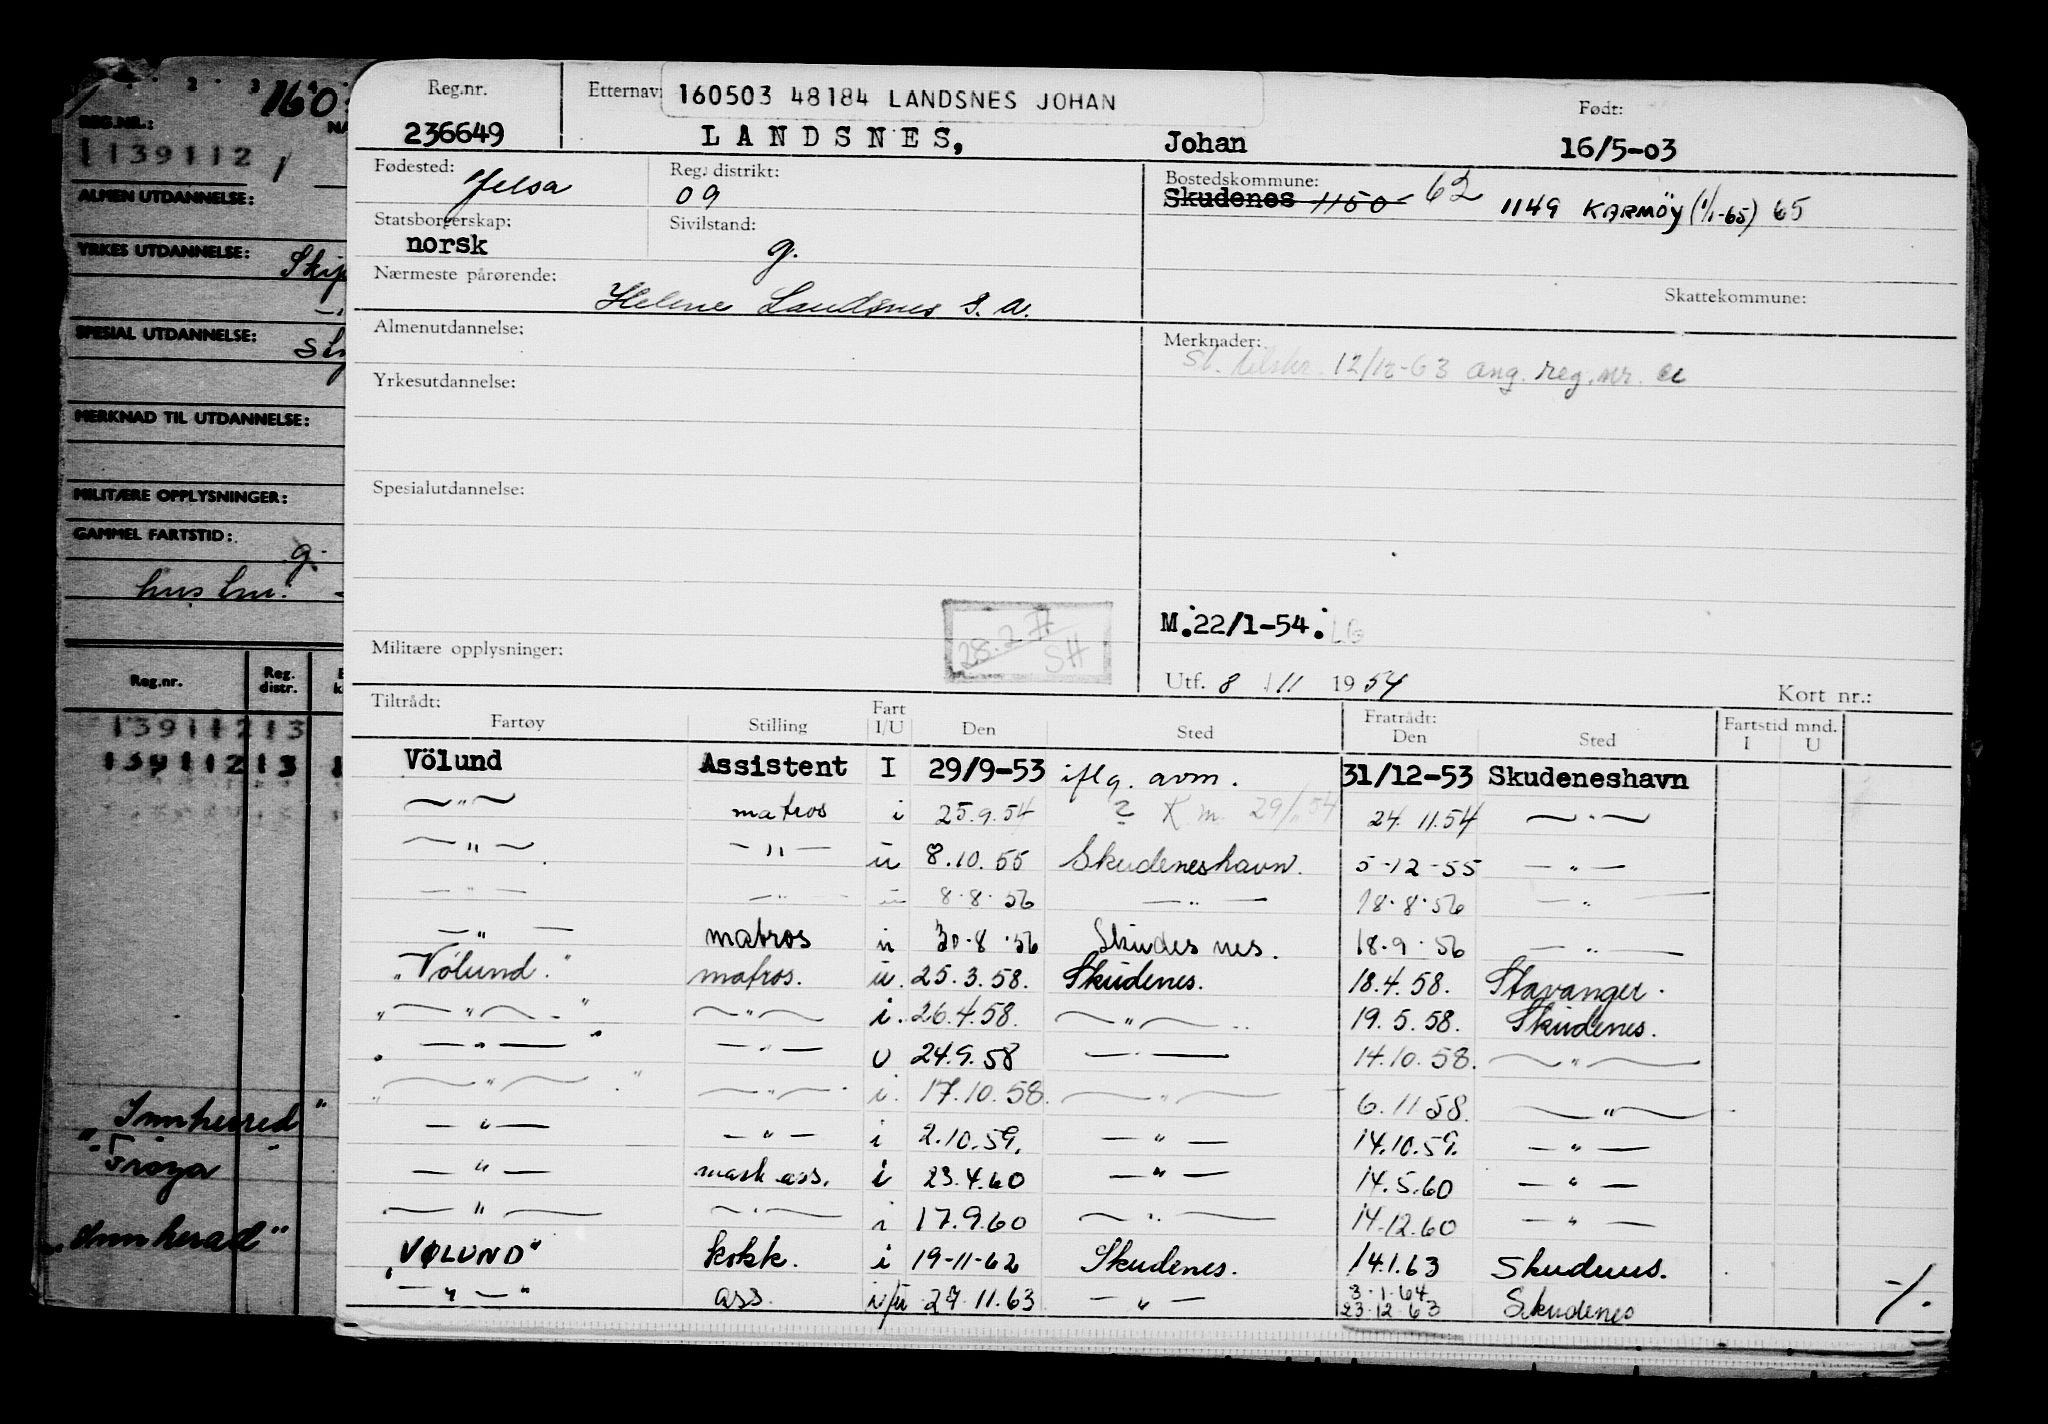 160
REG.NR.:
139112 /
ALMEN UTDANNELSE:
YRKES UTDANNELSE:
SPESIAL UTDANNELSE:
MERKNAD TIL UTDANNELSE:
MILITÆRE OPPLYSNINGER:
GAMMEL FARTSTID:
g.
Reg.nr. Reg. distr.
139112 13
139112 13
Innherred"
"Frøya
"Innherad"
Reg.nr. Etternavn 160503 48184 LANDSNES JOHAN Født:
236649 LANDSNES, Johan 16/5-03
Fødested: Jelsa Reg. distrikt: 09 Bostedskommune: Skudenes 1150 62 1149 KARMØY (1/1-65) 65
Statsborgerskap: norsk Sivilstand: g.
Nærmeste pårørende: Skattekommune:
Helene Landsnes s. a.
Almenutdannelse: Merknader:
12/12-63 ang. reg.nr.
Yrkesutdannelse:
Spesialutdannelse:
M.22/1-54. LG
28.2 SH
Militære opplysninger: Utf. 8/11 1954 Kort nr.:
Tiltrådt: Fratrådt: Fartstid mnd.
Fartøy Stilling Fart I/U Den Sted Den Sted I U
Völund Assistent I 29/9-53 iflg. avm. 31/12-53 Skudeneshavn
—"— matros i 25.9.54 ? 24.11.54 —"—
—"— —"— u 8.10.55 Skudeneshavn. 5-12-55 —"—
—"— —"— u 8.8.56 —"— 18.8.56 —"—
—"— matros u 30.8.56 Skudesnes. 18.9.56 —"—
"Vølund." matros. u. 25.3.58. Skudenes. 18.4.58. Stavanger.
"—"—" —"— i. 26.4.58. —"— 19.5.58. Skudenes.
"—"—" —"— u 24.9.58 —"— 14.10.58. —"—
"—"—" —"— i. 17.10.58. —"— 6.11.58. —"—
—"— —"— i 2.10.59. —"— 14.10.59. —"—
—"— mask ass. i 23.4.60 —"— 14.5.60 —"—
—"— —"— i 17.9.60 —"— 14.12.60 —"—
"VØLUND" kokk. i 19-11-62 Skudenes. 14.1.63 Skudenes.
"—"—" ass. i/u 27.11.63 —"— 3.1.64 23.12.63 Skudenes